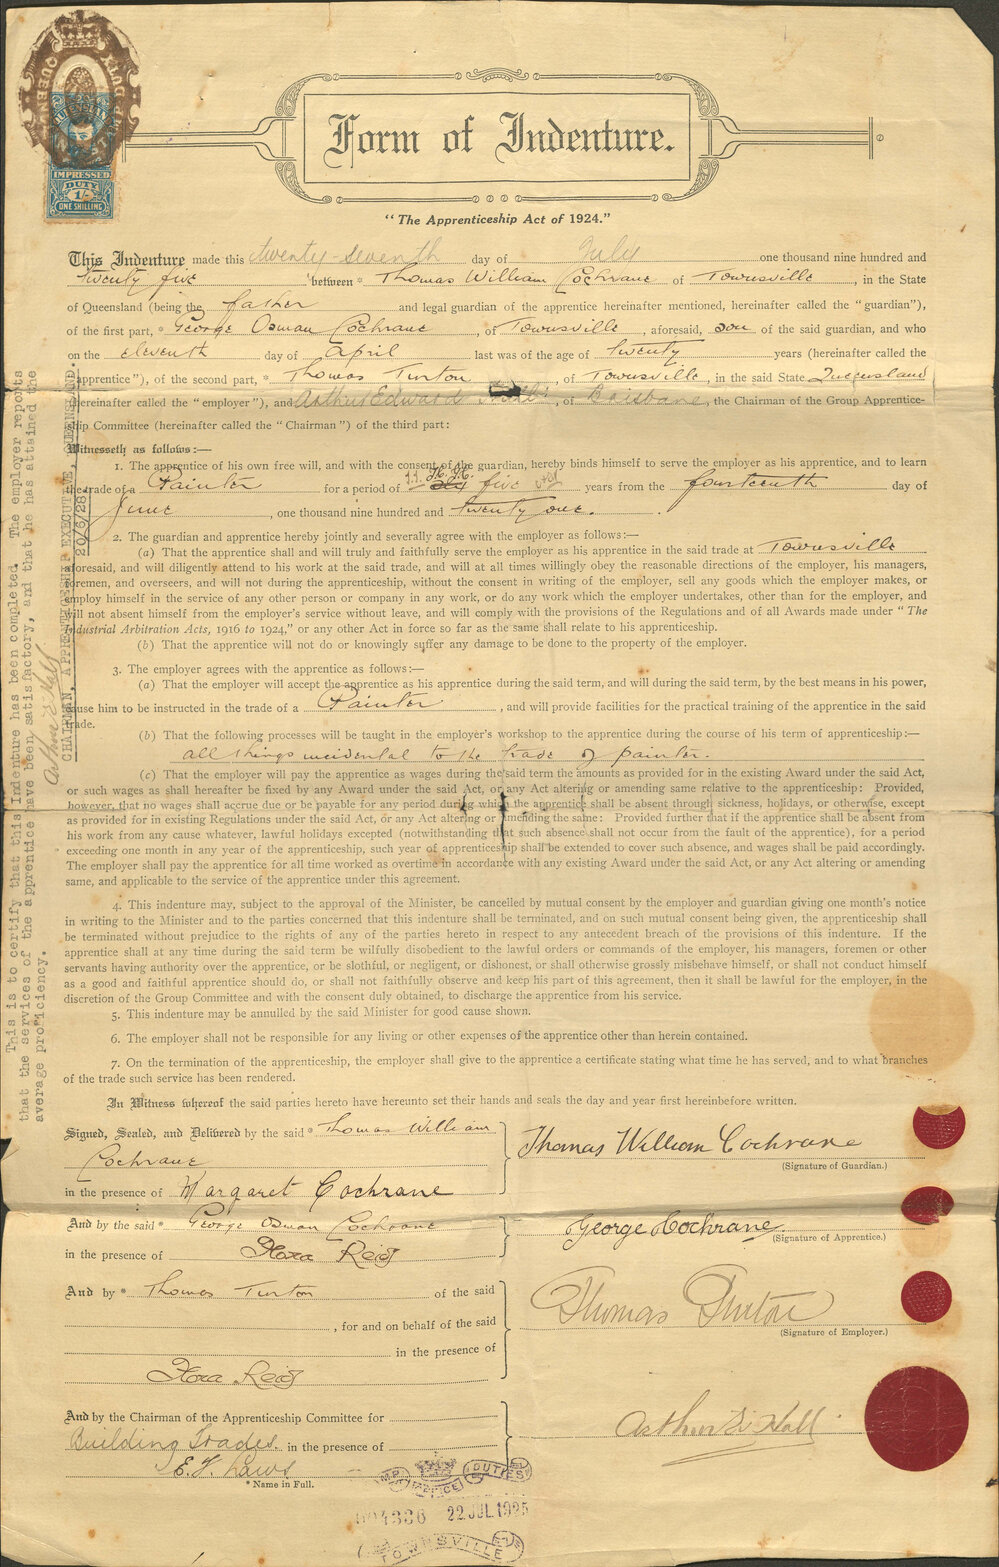 QUEEN
DUTY
IMPRESSED
DUTY
1/-
ONE SHILLING
Form of Indenture.
"The Apprenticeship Act of 1924."
This Indenture made this twenty-seventh day of July one thousand nine hundred and
twenty five between * Thomas William Cochrane of Townsville, in the State
of Queensland (being the father and legal guardian of the apprentice hereinafter mentioned, hereinafter called the "guardian"),
of the first part, * George Osman Cochrane, of Townsville, aforesaid, son of the said guardian, and who
on the eleventh day of April last was of the age of twenty years (hereinafter called the
"apprentice"), of the second part, * Thomas Turton, of Townsville, in the said State Queensland
(hereinafter called the "employer"), and Arthur Edward Hall, of Brisbane, the Chairman of the Group Apprentice-
ship Committee (hereinafter called the "Chairman") of the third part:
Witnesseth as follows:—
1. The apprentice of his own free will, and with the consent of the guardian, hereby binds himself to serve the employer as his apprentice, and to learn
the trade of a Painter for a period of five years from the fourteenth day of
June, one thousand nine hundred and twenty one.
2. The guardian and apprentice hereby jointly and severally agree with the employer as follows:—
(a) That the apprentice shall and will truly and faithfully serve the employer as his apprentice in the said trade at Townsville
aforesaid, and will diligently attend to his work at the said trade, and will at all times willingly obey the reasonable directions of the employer, his managers,
foremen, and overseers, and will not during the apprenticeship, without the consent in writing of the employer, sell any goods which the employer makes, or
employ himself in the service of any other person or company in any work, or do any work which the employer undertakes, other than for the employer, and
will not absent himself from the employer's service without leave, and will comply with the provisions of the Regulations and of all Awards made under "The
Industrial Arbitration Acts, 1916 to 1924," or any other Act in force so far as the same shall relate to his apprenticeship.
(b) That the apprentice will not do or knowingly suffer any damage to be done to the property of the employer.
3. The employer agrees with the apprentice as follows:—
(a) That the employer will accept the apprentice as his apprentice during the said term, and will during the said term, by the best means in his power,
cause him to be instructed in the trade of a Painter, and will provide facilities for the practical training of the apprentice in the said
trade.
(b) That the following processes will be taught in the employer's workshop to the apprentice during the course of his term of apprenticeship:—
all things incidental to the trade of painter.
(c) That the employer will pay the apprentice as wages during the said term the amounts as provided for in the existing Award under the said Act,
or such wages as shall hereafter be fixed by any Award under the said Act, or any Act altering or amending same relative to the apprenticeship: Provided,
however, that no wages shall accrue due or be payable for any period during which the apprentice shall be absent through sickness, holidays, or otherwise, except
as provided for in existing Regulations under the said Act, or any Act altering or amending the same: Provided further that if the apprentice shall be absent from
his work from any cause whatever, lawful holidays excepted (notwithstanding that such absence shall not occur from the fault of the apprentice), for a period
exceeding one month in any year of the apprenticeship, such year of apprenticeship shall be extended to cover such absence, and wages shall be paid accordingly.
The employer shall pay the apprentice for all time worked as overtime in accordance with any existing Award under the said Act, or any Act altering or amending
same, and applicable to the service of the apprentice under this agreement.
4. This indenture may, subject to the approval of the Minister, be cancelled by mutual consent by the employer and guardian giving one month's notice
in writing to the Minister and to the parties concerned that this indenture shall be terminated, and on such mutual consent being given, the apprenticeship shall
be terminated without prejudice to the rights of any of the parties hereto in respect to any antecedent breach of the provisions of this indenture. If the
apprentice shall at any time during the said term be wilfully disobedient to the lawful orders or commands of the employer, his managers, foremen or other
servants having authority over the apprentice, or be slothful, or negligent, or dishonest, or shall otherwise grossly misbehave himself, or shall not conduct himself
as a good and faithful apprentice should do, or shall not faithfully observe and keep his part of this agreement, then it shall be lawful for the employer, in the
discretion of the Group Committee and with the consent duly obtained, to discharge the apprentice from his service.
5. This indenture may be annulled by the said Minister for good cause shown.
6. The employer shall not be responsible for any living or other expenses of the apprentice other than herein contained.
7. On the termination of the apprenticeship, the employer shall give to the apprentice a certificate stating what time he has served, and to what branches
of the trade such service has been rendered.
In Witness whereof the said parties hereto have hereunto set their hands and seals the day and year first hereinbefore written.
Signed, Sealed, and Delivered by the said * Thomas William
Cochrane
in the presence of Margaret Cochrane
Thomas William Cochrane
(Signature of Guardian.)
And by the said * George Osman Cochrane
in the presence of Flora Reid
George Cochrane
(Signature of Apprentice.)
And by * Thomas Turton of the said
, for and on behalf of the said
in the presence of
Flora Reid
Thomas Turton
(Signature of Employer.)
And by the Chairman of the Apprenticeship Committee for
Building Trades in the presence of
E. J. Laws
* Name in Full.
Arthur E Hall
IMP OFFICE DUTIES
22 JUL 1925
TOWNSVILLE
This is to certify that this Indenture has been completed. The employer reports
that the services of the apprentice have been satisfactory, and that he has attained the
average proficiency.
Arthur E Hall
CHAIRMAN, APPRENTICESHIP EXECUTIVE, QUEENSLAND.
20/6/28